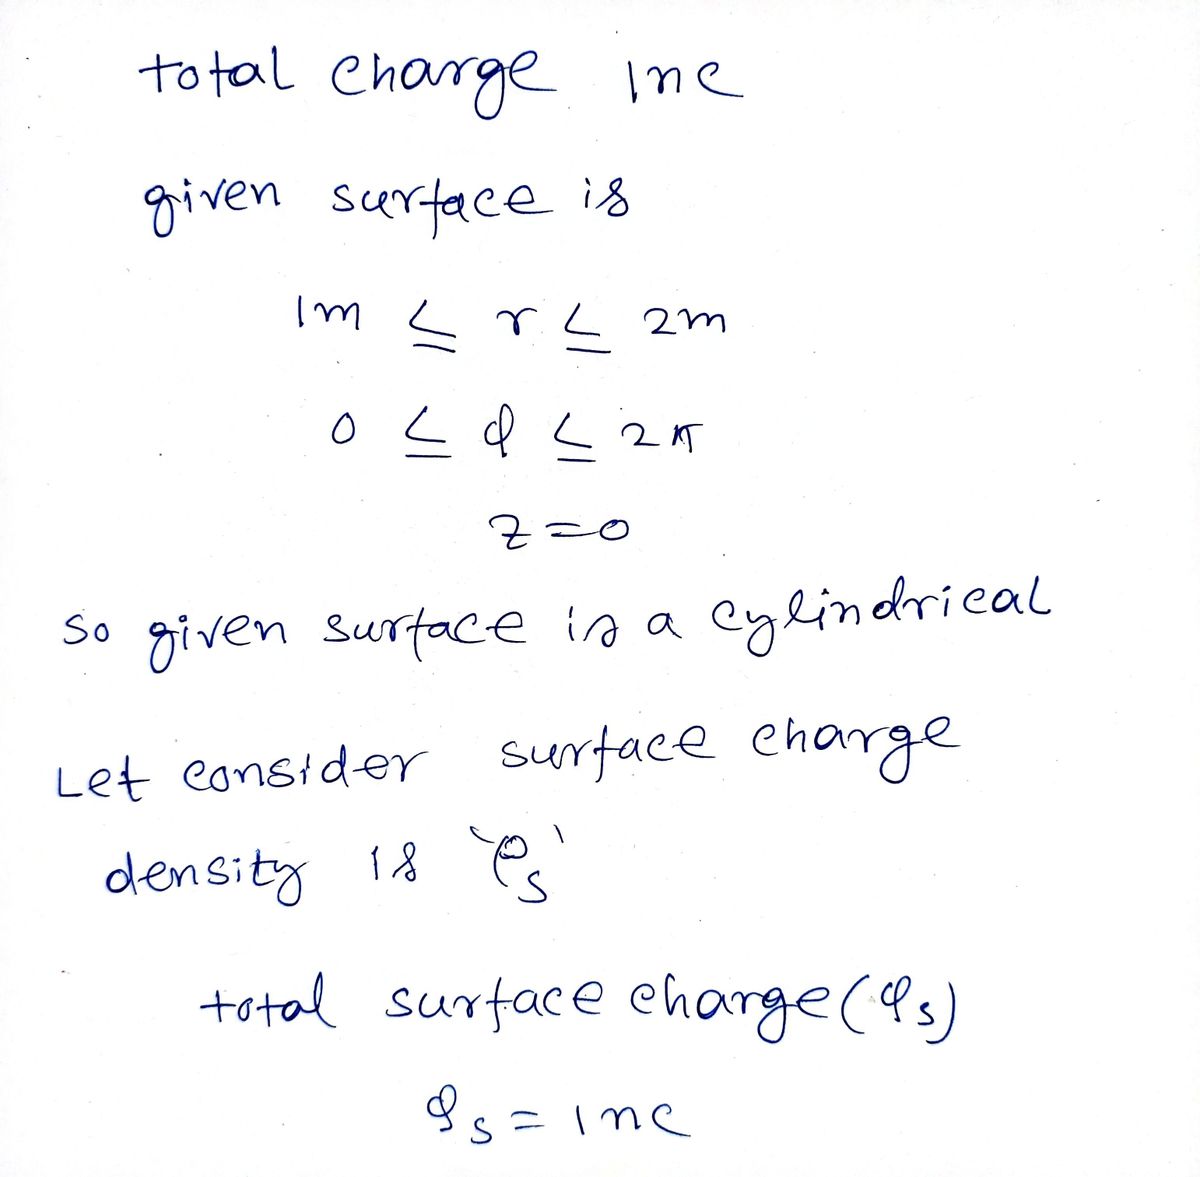 total charge 1nc
given surface is
1m ≤ r ≤ 2m
0 ≤ φ ≤ 2π
z=0
so given surface is a cylindrical
Let consider surface charge
density is 'ρs'
total surface charge(Qs)
Qs = 1nc